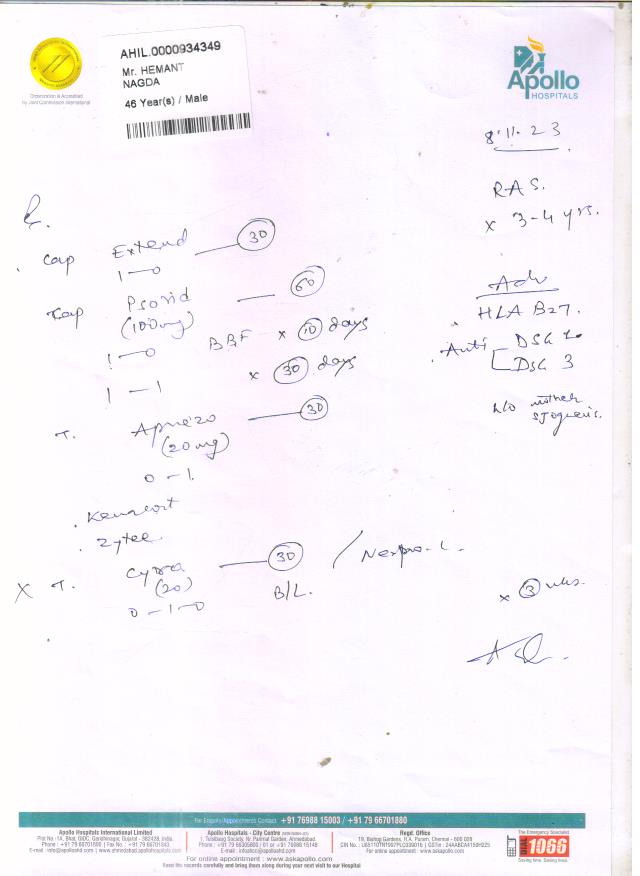 AHIL.0000934349
Mr. HEMANT
NAGDA
46 Year(s) / Male
Organization is Accredited
by Joint Commission International
Apollo
HOSPITALS
8.11.23
RAS.
x 3-4 yrs.
Cap Extend 30
1-0
Cap Psorid 60
(100mg)
1-0 BBF x 10 days
1-1 x 30 days
Adv
HLA B27.
Anti DSG 1
DSG 3
h/o mother
Sjogren's.
T. Aprezo 30
(20mg)
0-1
Kenacort
Zytee
X T. Cyra 30 / Nexpro-L
(20) B/L.
0-1-0
x 3 wks.
For Enquiry/Appointments Contact +91 76988 15003 / +91 79 66701880
Apollo Hospitals International Limited
Plot No -1A, Bhat, GIDC, Gandhinagar, Gujarat - 382428, India.
Phone : +91 79 66701800 | Fax No. : +91 79 66701843
E-mail : info@apolloahd.com | www.ahmedabad.apollohospitals.com
Apollo Hospitals - City Centre
1, Tulsibaug Society, Nr. Parimal Garden, Ahmedabad
Phone : +91 79 66305800 / 01 or +91 76988 15148
E-mail : infoahcc@apolloahd.com
Regd. Office
19, Bishop Gardens, R.A. Puram, Chennai - 600 028
For online appointment : www.askapollo.com
The Emergency Specialist
1066
Saving time. Saving lives.
For online appointment : www.askapollo.com
Keep the records carefully and bring them along during your next visit to our Hospital